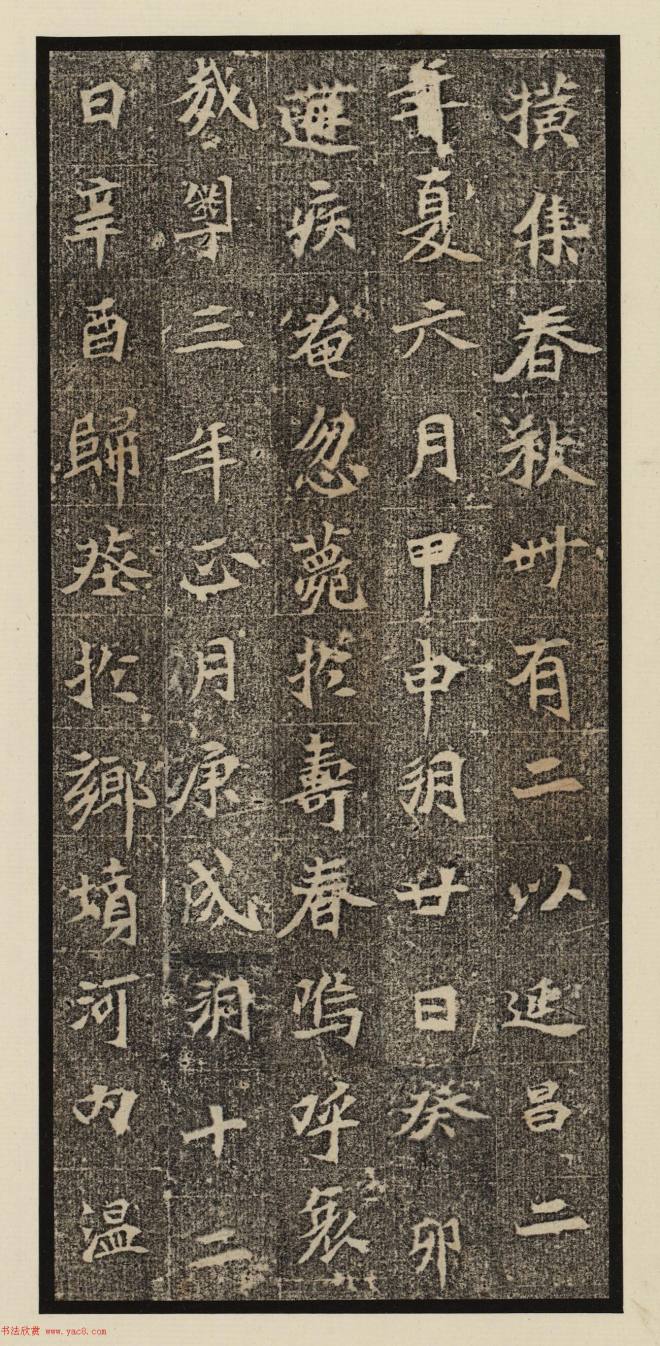 撗集春秋卌有二以延昌二
年夏六月甲申朔廿日癸卯
遘疾奄忽薨於壽春嗚呼哀
哉粵三年正月庚戌朔十二
日辛酉歸葬於鄉墳河內溫
书法欣赏 www.yac8.com